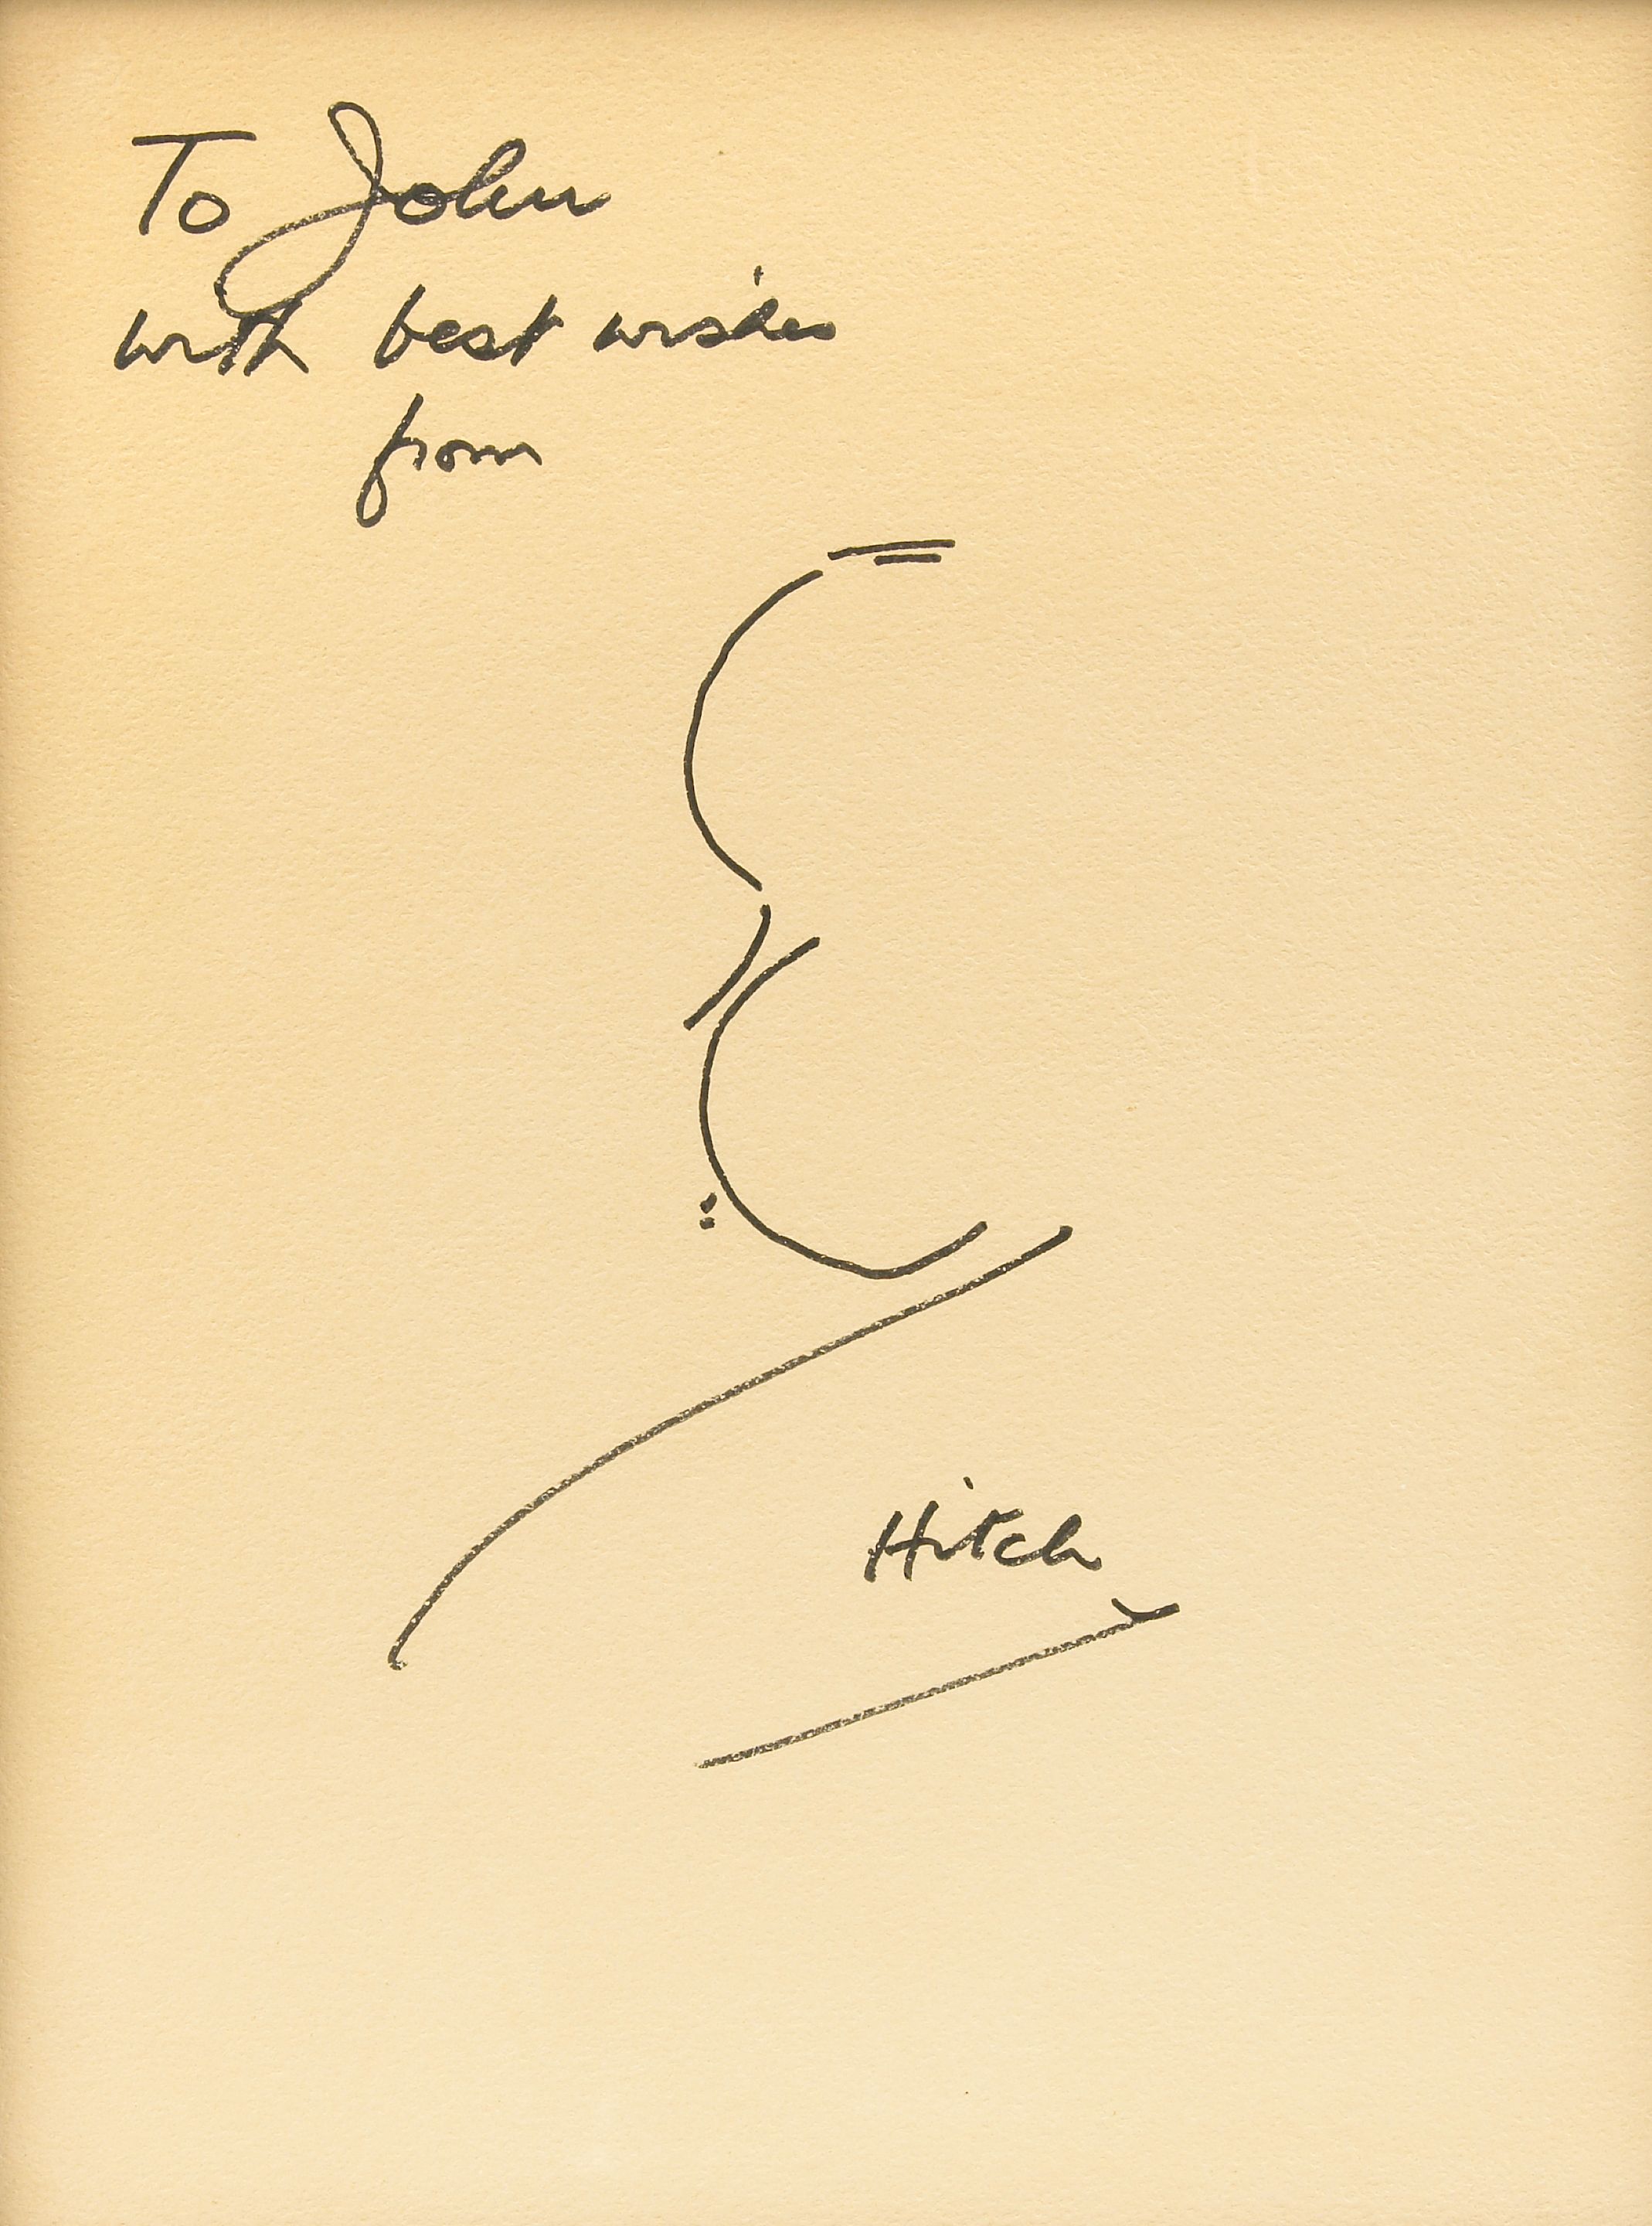 To John
with best wishes
from
Hitch